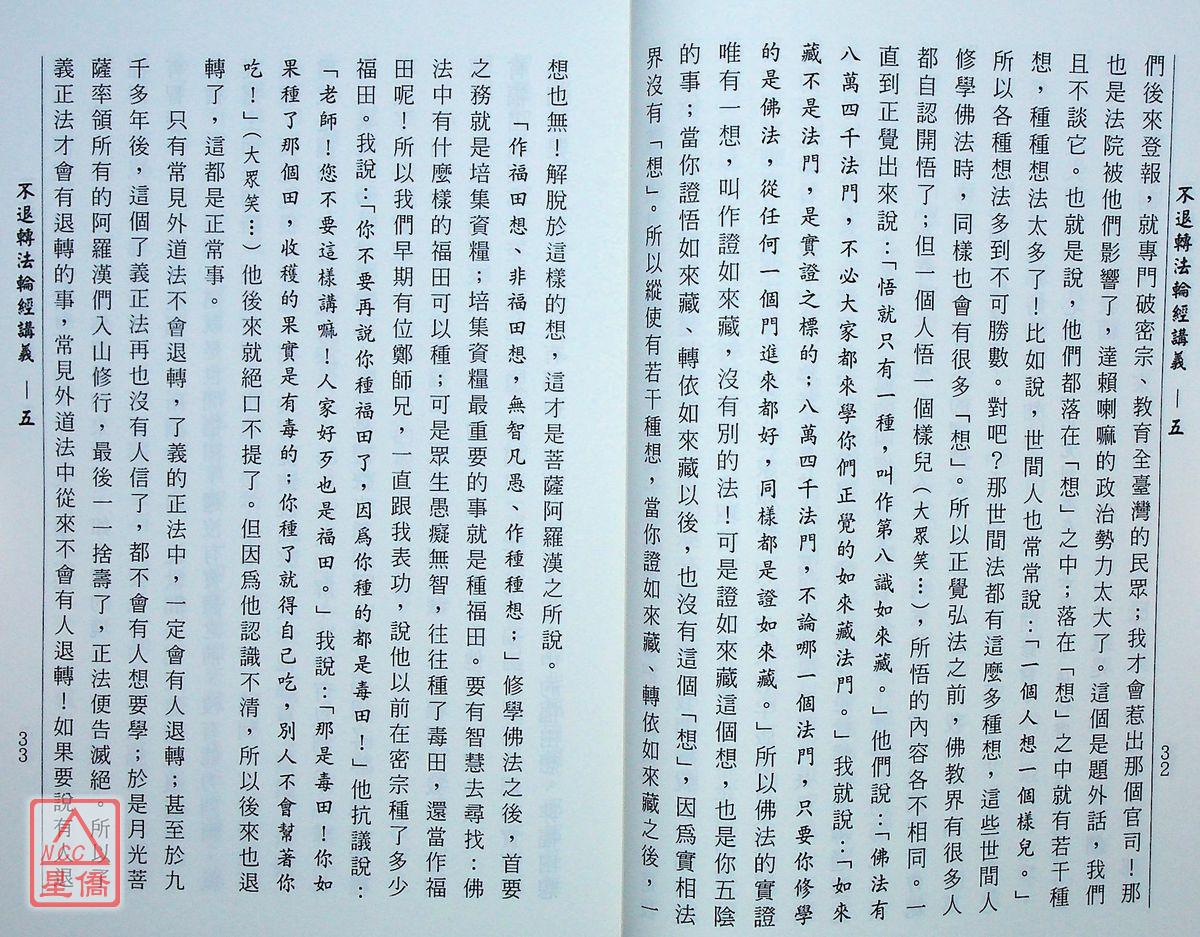 不退轉法輪經講義 — 五
32
們後來登報，就專門破密宗、教育全臺灣的民眾；我才會惹出那個官司！那
也是法院被他們影響了，達賴喇嘛的政治勢力太大了。這個是題外話，我們
且不談它。也就是說，他們都落在「想」之中；落在「想」之中就有若干種
想，種種想法太多了！比如說，世間人也常常說：「一個人想一個樣兒。」
所以各種想法多到不可勝數。對吧？那世間法都有這麼多種想，這些世間人
修學佛法時，同樣也會有很多「想」。所以正覺弘法之前，佛教界有很多人
都自認開悟了；但一個人悟一個樣兒（大眾笑…），所悟的內容各不相同。一
直到正覺出來說：「悟就只有一種，叫作第八識如來藏。」他們說：「佛法有
八萬四千法門，不必大家都來學你們正覺的如來藏法門。」我就說：「如來
藏不是法門，是實證之標的；八萬四千法門，不論哪一個法門，只要你修學
的是佛法，從任何一個門進來都好，同樣都是證如來藏。」所以佛法的實證
唯有一想，叫作證如來藏，沒有別的法！可是證如來藏這個想，也是你五陰
的事；當你證悟如來藏、轉依如來藏以後，也沒有這個「想」，因為實相法
界沒有「想」。所以縱使有若干種想，當你證如來藏、轉依如來藏之後，一
想也無！解脫於這樣的想，這才是菩薩阿羅漢之所說。
「作福田想、非福田想，無智凡愚、作種種想；」修學佛法之後，首要
之務就是培集資糧；培集資糧最重要的事就是種福田。要有智慧去尋找：佛
法中有什麼樣的福田可以種；可是眾生愚癡無智，往往種了毒田，還當作福
田呢！所以我們早期有位鄭師兄，一直跟我表功，說他以前在密宗種了多少
福田。我說：「你不要再說你種福田了，因為你種的都是毒田！」他抗議說：
「老師！您不要這樣講嘛！人家好歹也是福田。」我說：「那是毒田！你如
果種了那個田，收穫的果實是有毒的；你種了就得自己吃，別人不會幫著你
吃！」（大眾笑…）他後來就絕口不提了。但因為他認識不清，所以後來也退
轉了，這都是正常事。
只有常見外道法不會退轉，了義的正法中，一定會有人退轉；甚至於九
千多年後，這個了義正法再也沒有人信了，都不會有人想要學；於是月光菩
薩率領所有的阿羅漢們入山修行，最後一一捨壽了，正法便告滅絕。所以了
義正法才會有退轉的事，常見外道法中從來不會有人退轉！如果要說有人退
不退轉法輪經講義 — 五
33
NCC
星僑